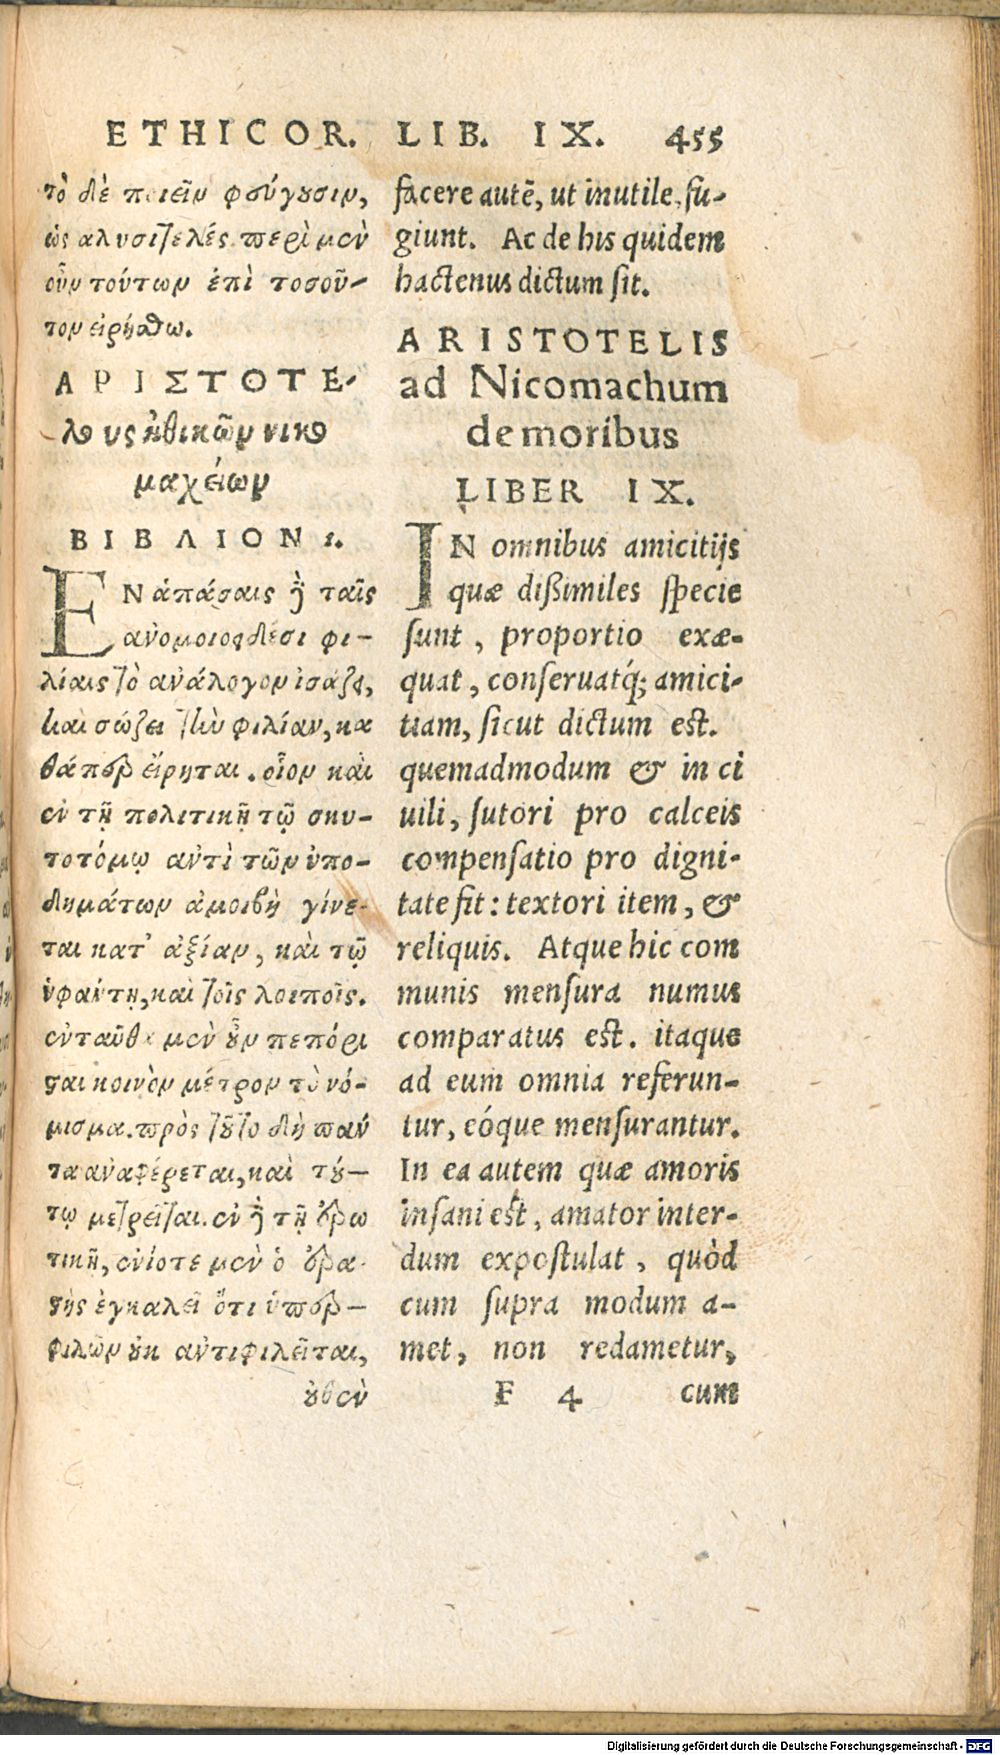 ETHICOR. LIB. IX. 455
τὸ δὲ ποιεῖν φεύγουσιν,
ὡς ἀλυσιτελές. περὶ μὲν
οὖν τούτων ἐπὶ τοσοῦ-
τον εἰρήσθω.
ΑΡΙΣΤΟΤΕ-
λους ἠθικῶν νικο
μαχείων
ΒΙΒΛΙΟΝ ι.
ΕΝ ἁπάσαις δὲ ταῖς
ἀνομοιοειδέσι φι-
λίαις τὸ ἀνάλογον ἰσάζει,
καὶ σώζει τὴν φιλίαν, κα
θάπερ εἴρηται. οἷον καὶ
ἐν τῇ πολιτικῇ τῷ σκυ-
τοτόμῳ ἀντὶ τῶν ὑπο-
δημάτων ἀμοιβὴ γίνε-
ται κατ' ἀξίαν, καὶ τῷ
ὑφάντῃ, καὶ τοῖς λοιποῖς.
ἐνταῦθα μὲν οὖν πεπόρι
σται κοινὸν μέτρον τὸ νό-
μισμα. πρὸς τοῦτο δὴ πάν
τα ἀναφέρεται, καὶ τού-
τῳ μετρεῖται. ἐν δὲ τῇ ἐρω
τικῇ, ἐνίοτε μὲν ὁ ἐρα-
στὴς ἐγκαλεῖ ὅτι ὑπερ-
φιλῶν οὐκ ἀντιφιλεῖται,
οὐδὲν
facere autē, ut inutile, fu-
giunt. Ac de his quidem
hactenus dictum sit.
ARISTOTELIS
ad Nicomachum
de moribus
LIBER IX.
IN omnibus amicitijs
quæ dißimiles specie
sunt, proportio exæ-
quat, conseruatq́; amici-
tiam, sicut dictum est.
quemadmodum & in ci
uili, sutori pro calceis
compensatio pro digni-
tate fit: textori item, &
reliquis. Atque hic com
munis mensura numus
comparatus est. itaque
ad eum omnia referun-
tur, eóque mensurantur.
In ea autem quæ amoris
insani est, amator inter-
dum expostulat, quòd
cum supra modum a-
met, non redametur,
F 4 cum
Digitalisierung gefördert durch die Deutsche Forschungsgemeinschaft - DFG